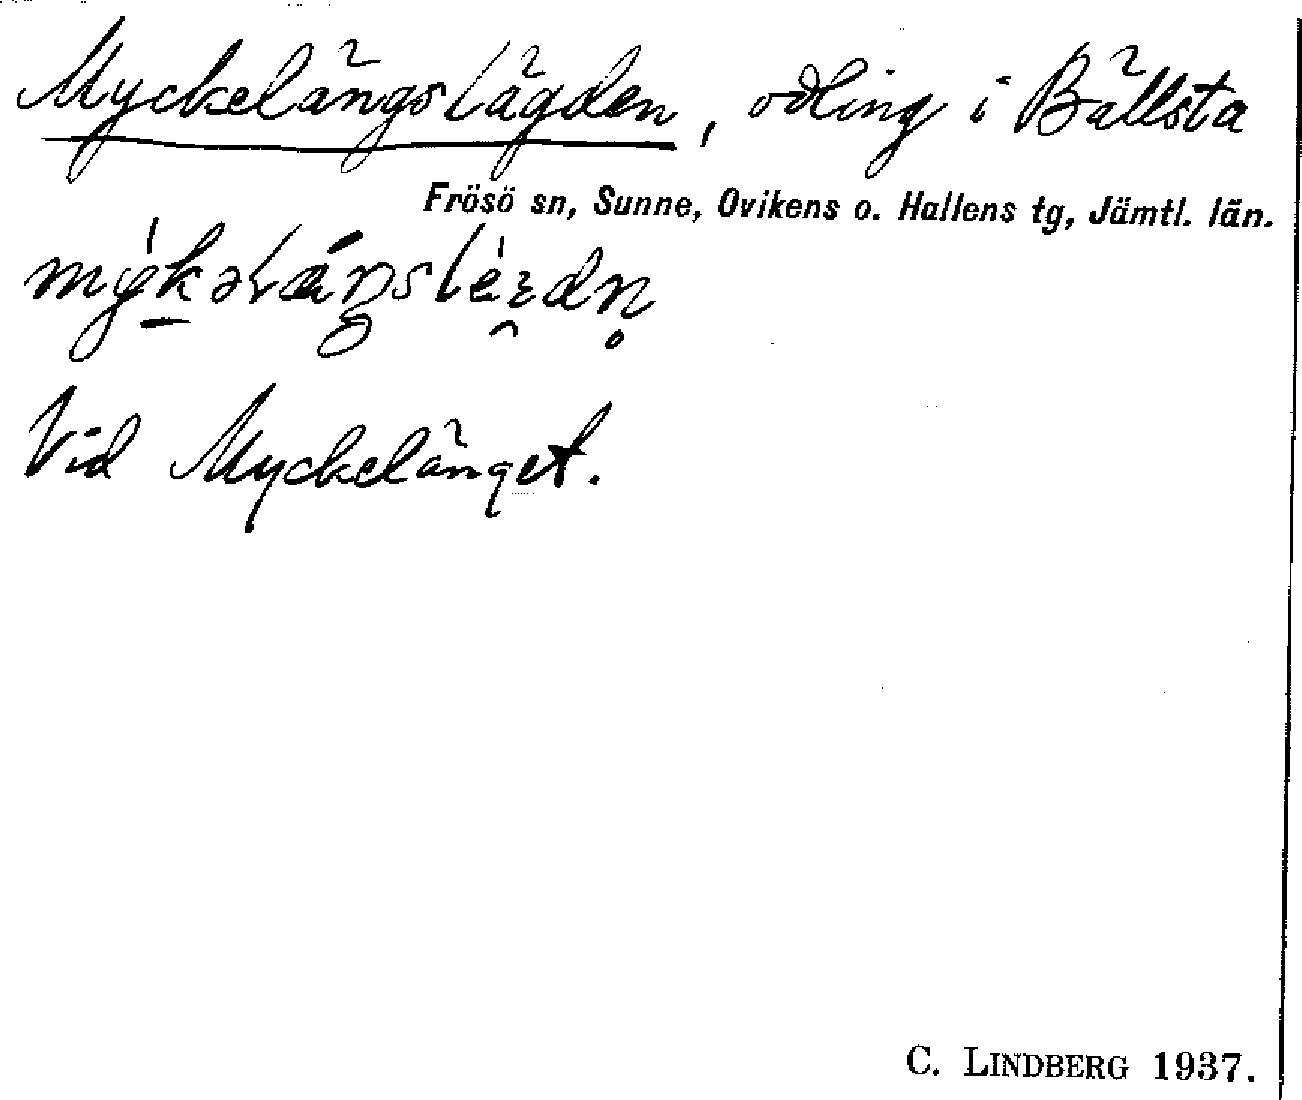 Myckelängslägden, odling i Bällsta
Frösö sn, Sunne, Ovikens o. Hallens tg, Jämtl. län.
Vid Myckelänget.
C. LINDBERG 1937.